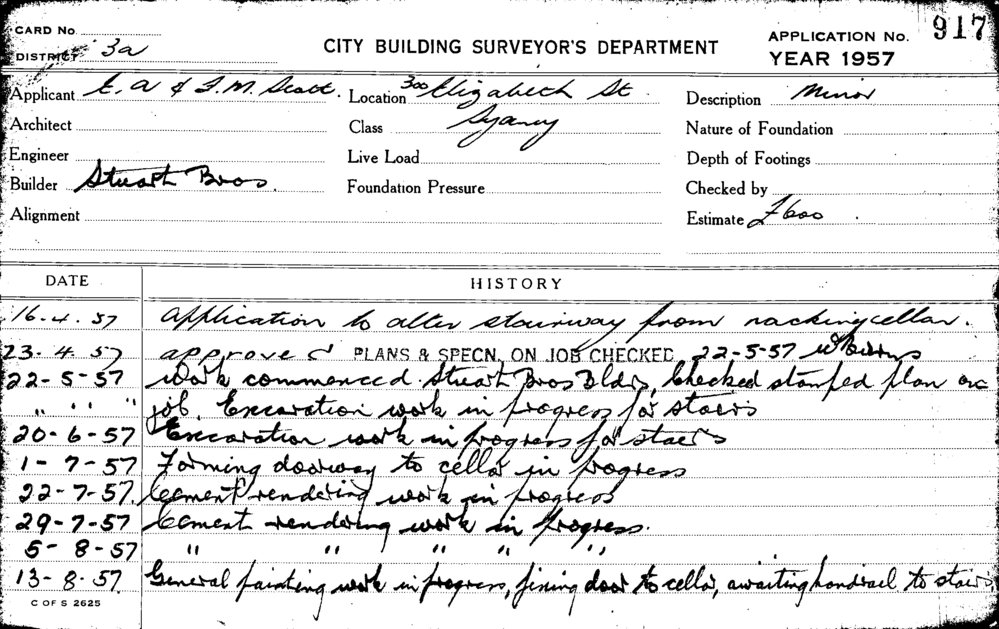 CARD No
DISTRICT 3a
CITY BUILDING SURVEYOR'S DEPARTMENT
APPLICATION No. 917
YEAR 1957
Applicant E.A & F.M. Scott. Location 300 Elizabeth St. Description Minor
Architect Class Sydney Nature of Foundation
Engineer Live Load Depth of Footings
Builder Stuart Bros. Foundation Pressure Checked by
Alignment Estimate £600.
DATE HISTORY
16-4-57 Application to alter stairway from racking cellar.
23-4-57 approved PLANS & SPECN. ON JOB CHECKED 22-5-57
22-5-57 Work commenced Stuart Bros Bldrs, Checked stamped plan on
" " " job. Excavation work in progress for stairs
20-6-57 Excavation work in progress for stairs
1-7-57 Forming doorway to cellar in progress
22-7-57. Cement rendering work in progress
29-7-57 Cement rendering work in progress.
5-8-57 " " " " "
13-8-57. General painting work in progress, fixing door to cellar, awaiting handrail to stairs
C OF S 2625